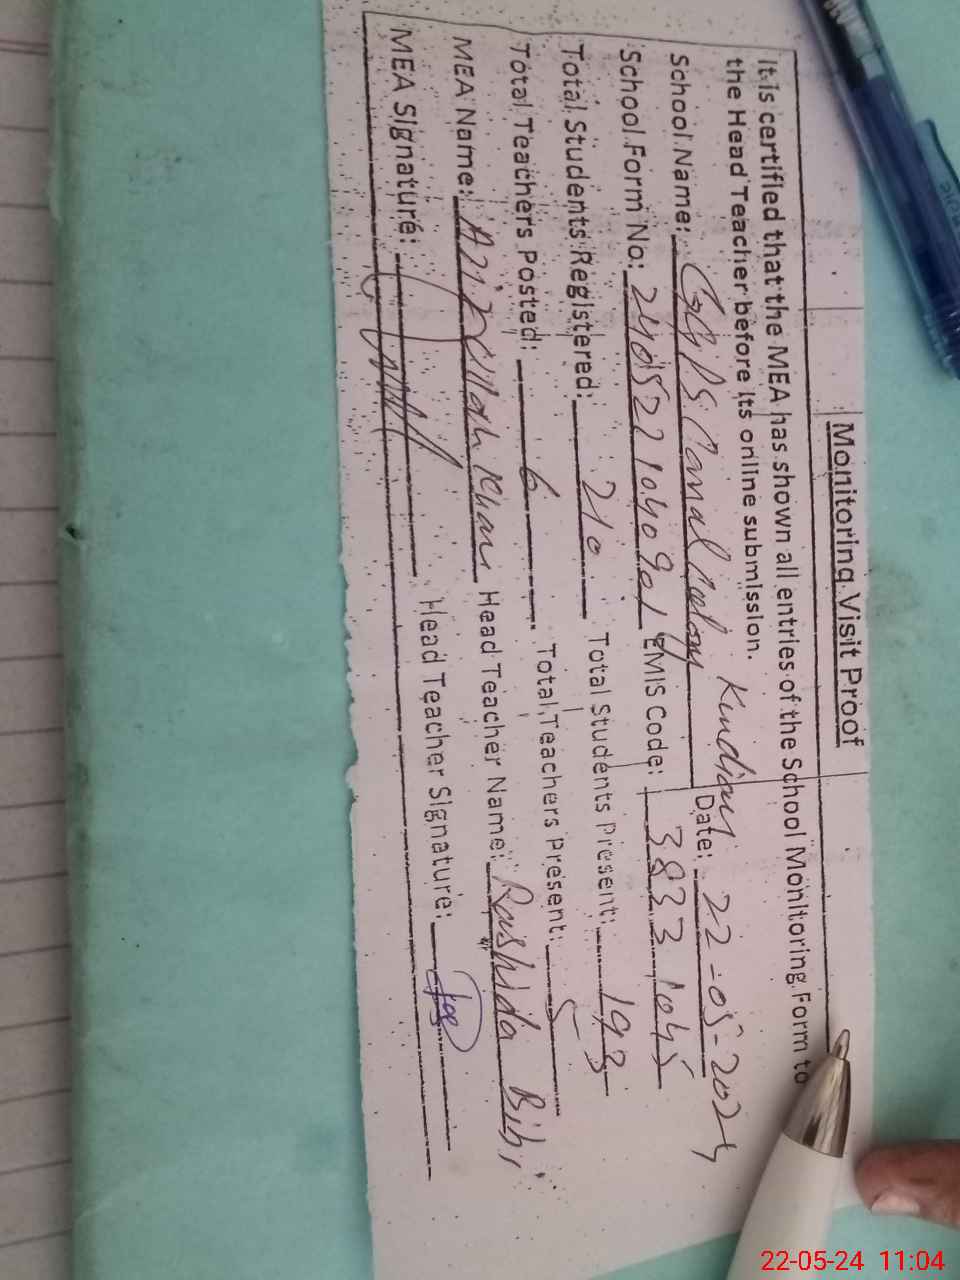 Monitoring Visit Proof
It is certified that the MEA has shown all entries of the School Monitoring Form to
the Head Teacher before its online submission.
School Name: GGPS Canal Colony Kundian Date: 22-05-2024
School Form No: 2405221040901 EMIS Code: 38331045
Total Students Registered: 210 Total Students Present: 193
Total Teachers Posted: 6 Total Teachers Present: 5
MEA Name: Aziz Ullah Khan Head Teacher Name: Rashida Bibi
MEA Signature: Head Teacher Signature:
22-05-24 11:04